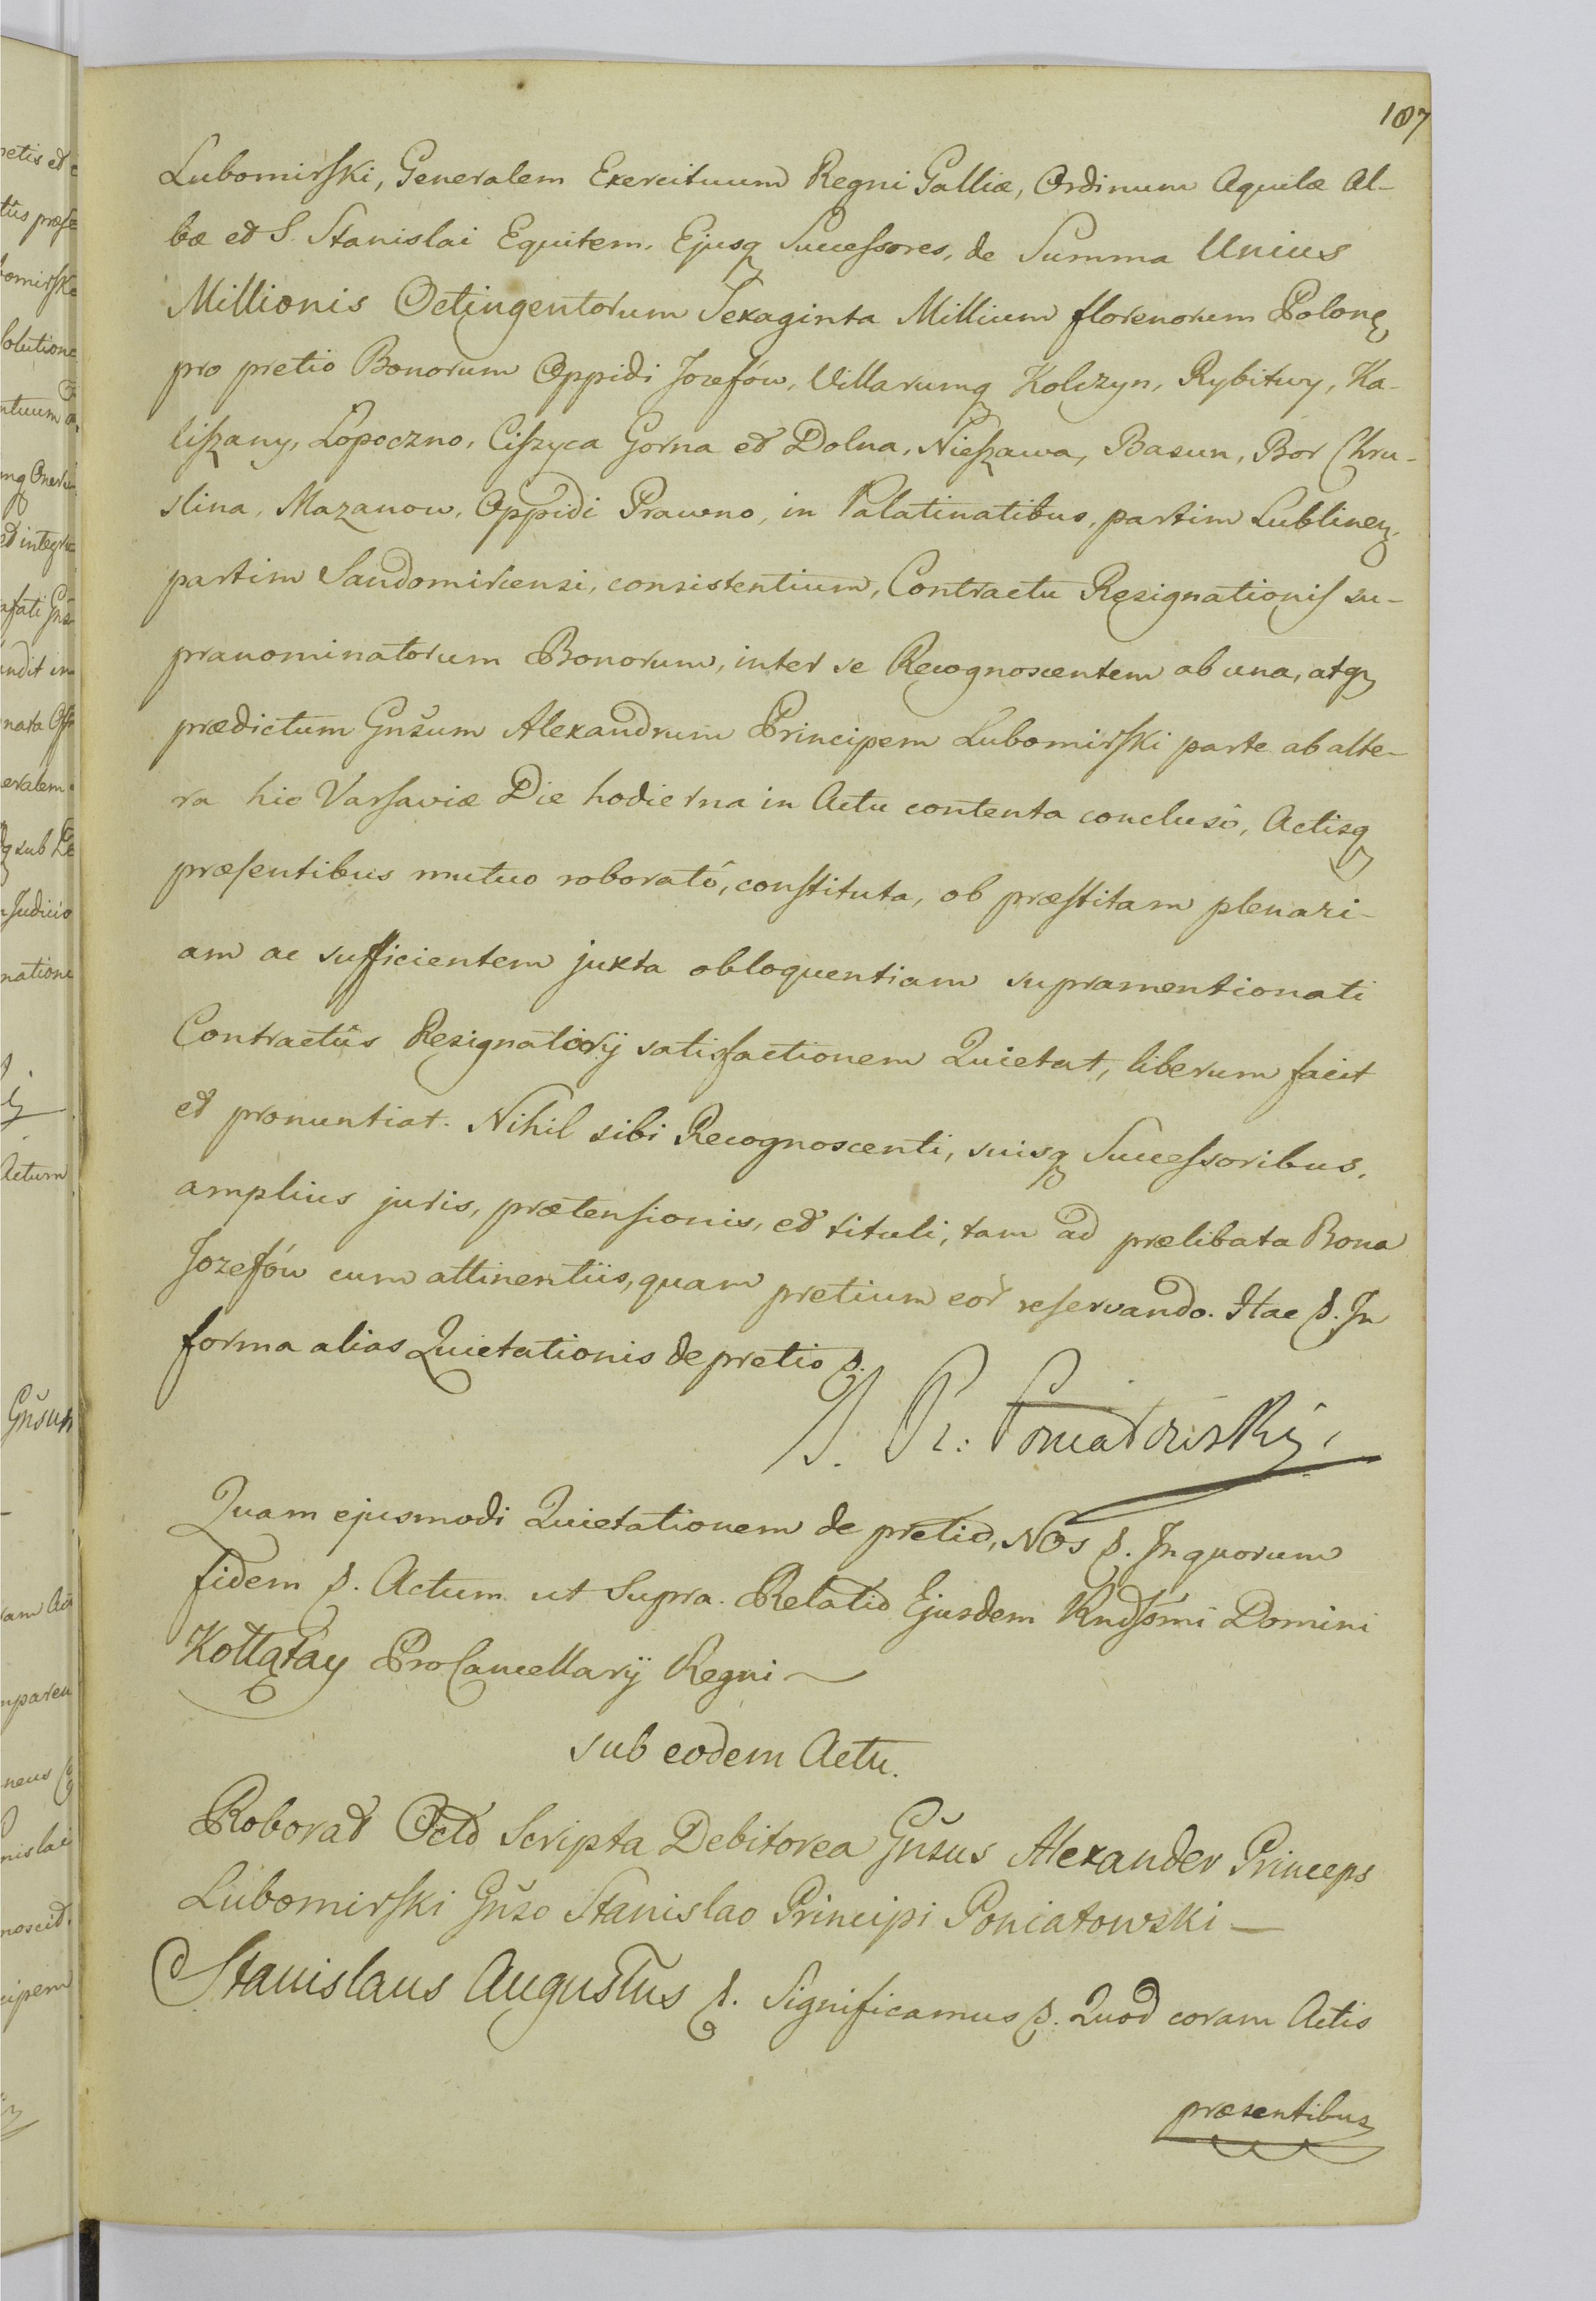 107
Lubomirski, Generalem Exercituum Regni Galliæ, Ordinum Aquilæ Al-
bæ et S. Stanislai Equitem, Ejusq Successores, de Summa Unius
Millionis Octingentorum Sexaginta Millium florenorum Polon
pro pretio Bonorum Oppidi Jozefów, Villarumq Kolczyn, Rybitwy, Ka-
liszany, Łopoczno, Ciszyca Gorna et Dolna, Nieszawa, Basun, Bor Chru-
slina, Mazanow, Oppidi Prawno, in Palatinatibus, partim Lublinen,
partim Sandomiriensi, consistentium, Contractu Resignationis su-
pranominatorum Bonorum, inter se Recognoscentem ab una, atq
prædictum Gnsum Alexandrum Principem Lubomirski parte ab alte-
ra hic Varsaviæ Die hodierna in Actu contenta conclusô, Actisq
præsentibus mutuo roboratô, constituta, ob præstitam plenari-
am ac sufficientem juxta obloquentiam supramentionati
Contractûs Resignatorij satisfactionem Quietat, liberum facit
et pronuntiat. Nihil sibi Recognoscenti, suisq Successoribus,
amplius juris, prætensionis, et tituli, tam ad prælibata Bona
Jozefów cum attinentiis, quam pretium eor reservando. Hac p. In
forma alias Quietationis de pretio p.
S. Pr: Poniatowski
Quam ejusmodi Quietationem de pretio, Nos p. In quorum
fidem p. Actum ut Supra. Relatio Ejusdem Rndsmi Domini
Kołłątay ProCancellarij Regni
sub eodem Actu.
Roborat Octo Scripta Debitorea Gnsus Alexander Princeps
Lubomirski Gnso Stanislao Principi Poniatowski
Stanislaus Augustus p. Significamus p. Quod coram Actis
præsentibus